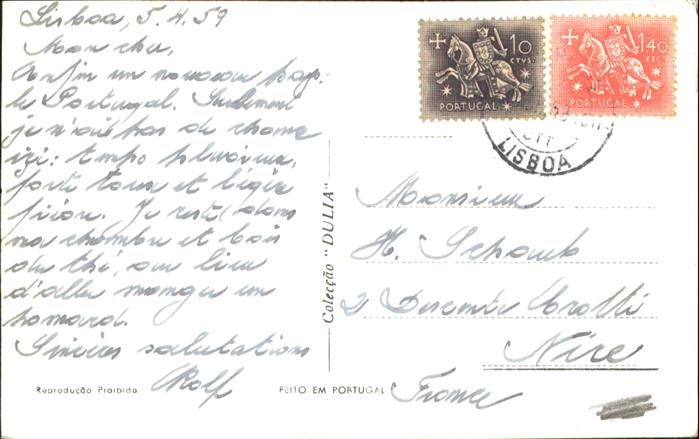 Lisboa, 5.4.59
Mon cher,
Enfin un nouveau pays:
le Portugal. Seulement
je n'ai pas de chance
ici: temps pluvieux,
forte toux et légère
fièvre. Je reste dans
ma chambre et bois
du thé, au lieu
d'aller manger un
homard.
Sincères salutations
Rolf
Reprodução Proibida
FEITO EM PORTUGAL
Colecção "DULIA"
10
CTVS.
PORTUGAL
1$40
ESC.
PORTUGAL
CTT
LISBOA
Monsieur
H. Schaub
2 Descente Crotti
Nice
France